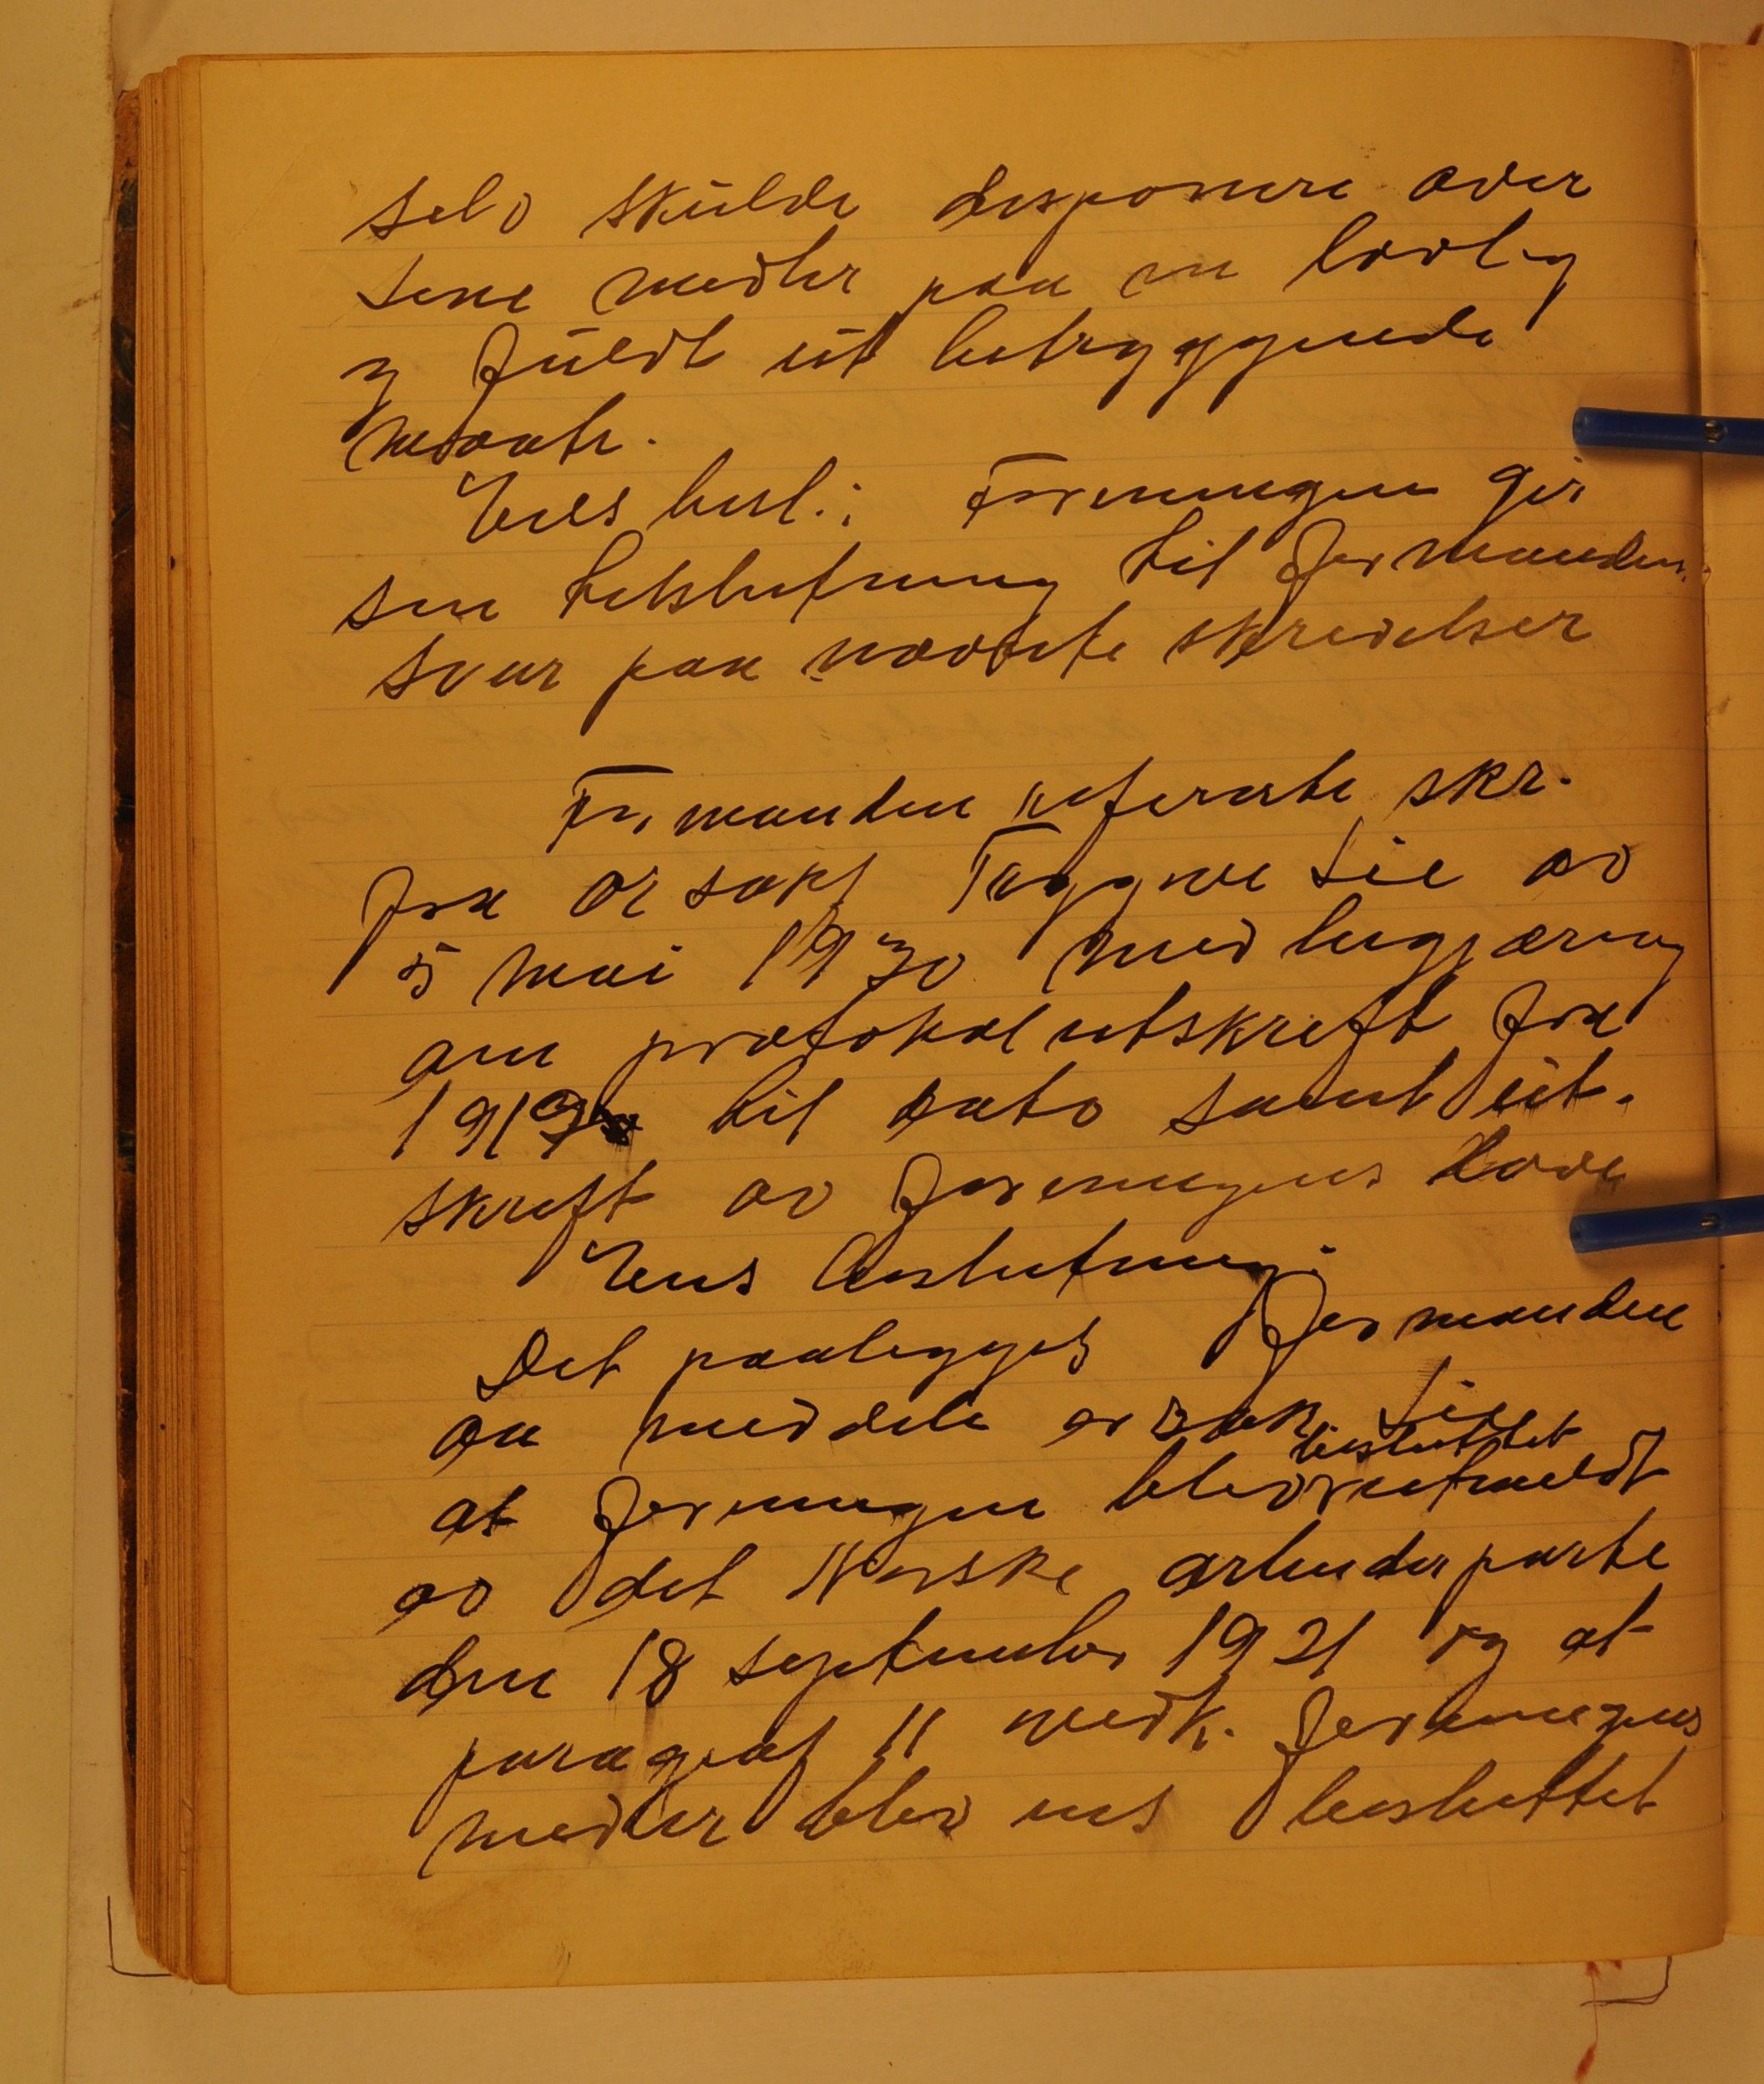 selv skulde disponere over
sine midler paa en lovlig
og fuldt ut betryggende
maate.
Ens besl.: Foreningen gir
sin tilslutning til formandens
svar paa nævnte skrivelser
Formanden refererte skr.
fra or sakf Trygve Lie av
5 mai 1930 med begjæring
om protokolutskrift fra
1919 til dato samt ut-
skrift av foreningens love
Ens beslutning:
Det paalegges formanden
aa meddele or sakf. Lie
besluttet
at foreningen blev utmeldt
av det Norske arbeiderparti
den 18 september 1921 og at
paragraf 11 vedk. foreningens
midler blev ens besluttet